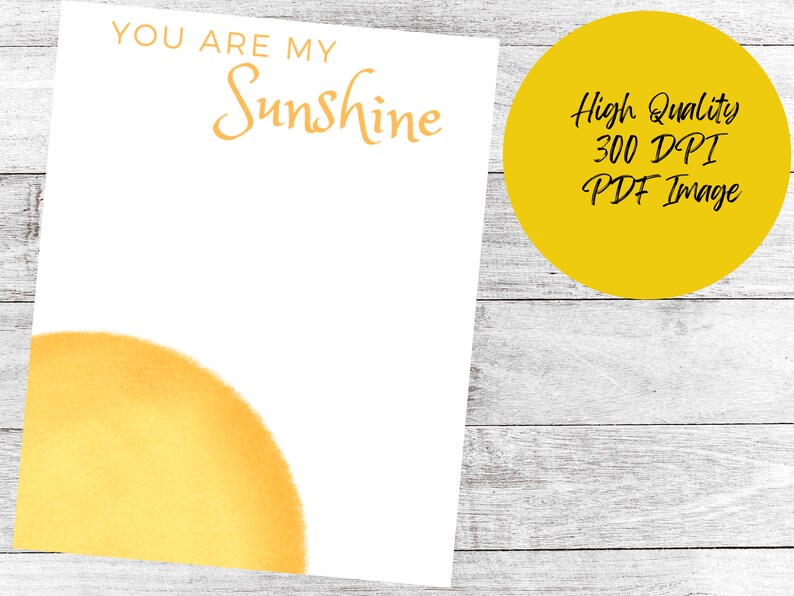 YOU ARE MY
Sunshine
High Quality
300 DPI
PDF Image